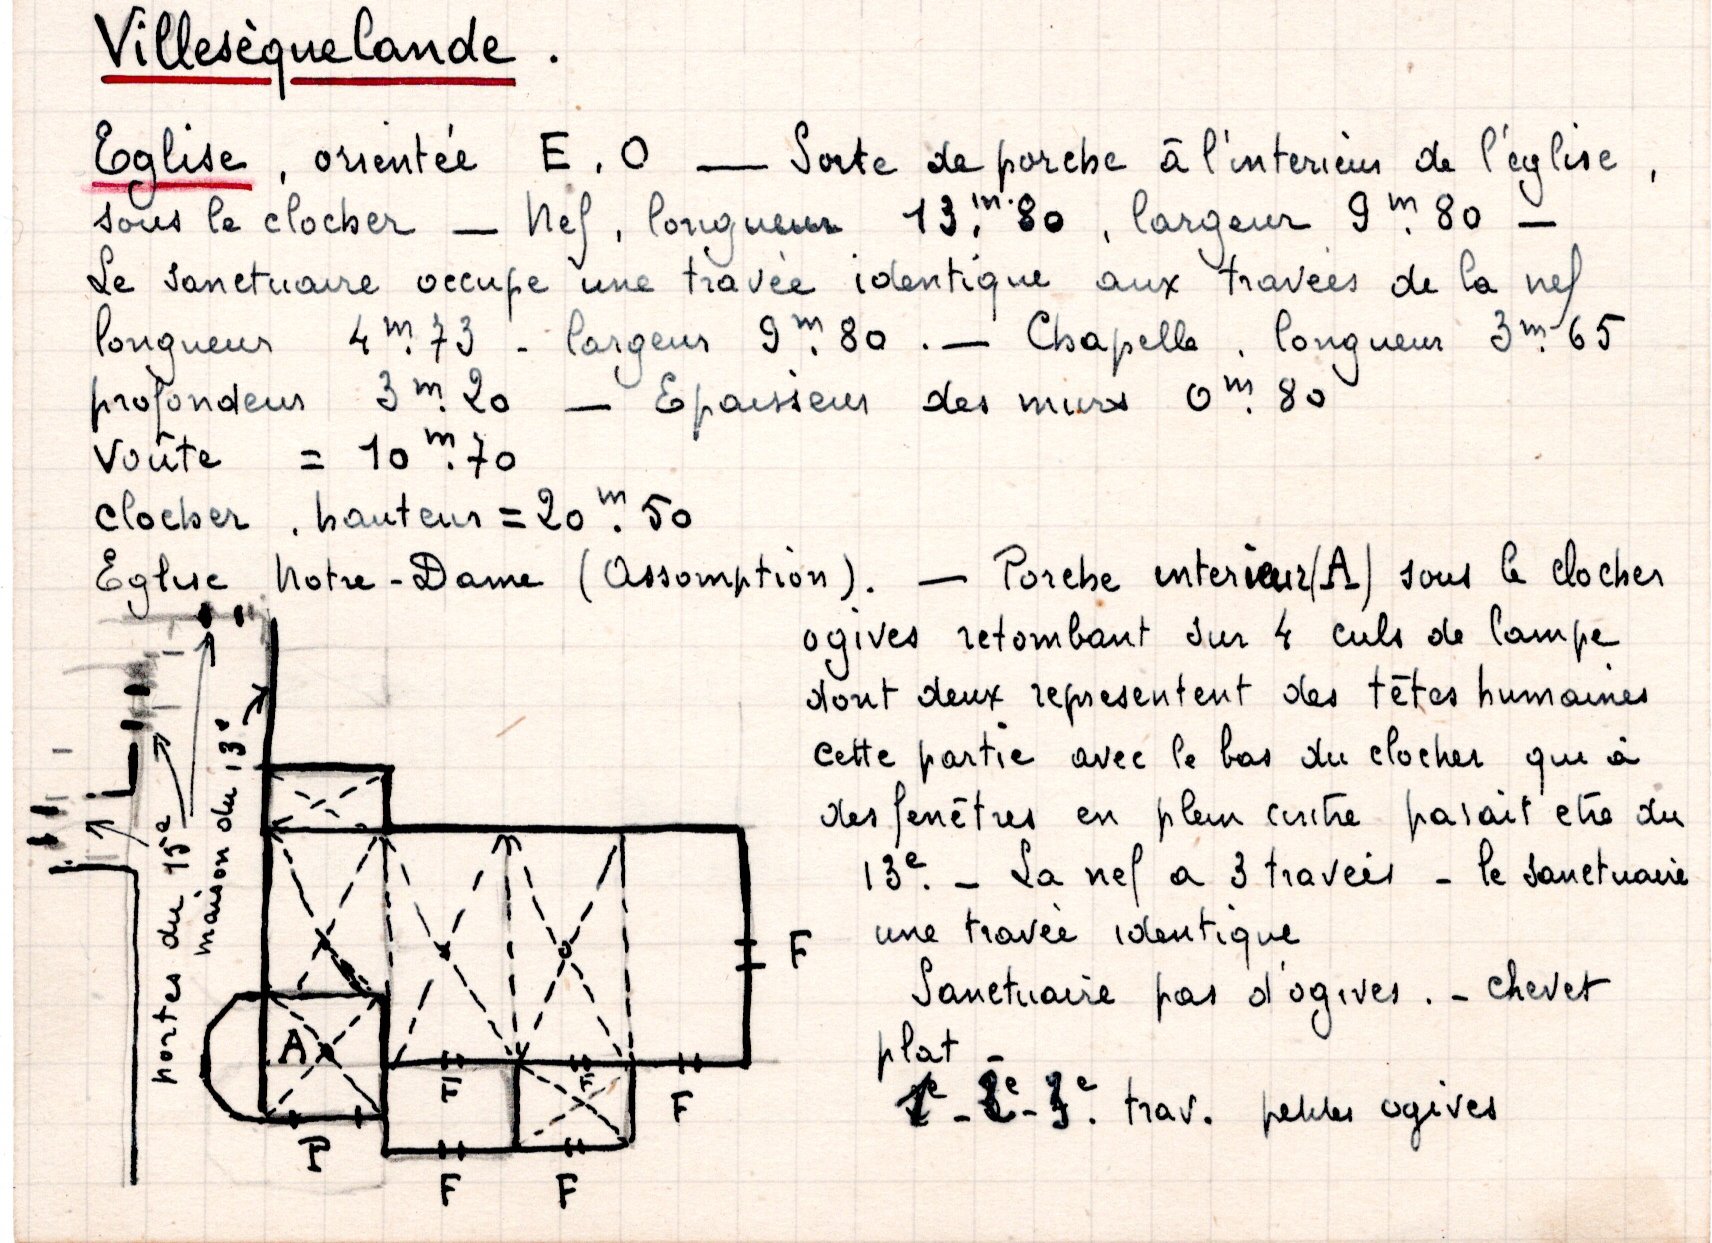 Villesèquelande.
Eglise, orientée E. O — Sorte de porche à l'interieur de l'église,
sous le clocher — Nef, longueur 13.m.80, largeur 9m.80 —
Le sanctuaire occupe une travée identique aux travées de la nef
longueur 4m.73 - largeur 9m.80. — Chapelle. longueur 3m.65
profondeur 3m.20 — Epaisseur des murs 0m.80
Voûte = 10m.70
clocher. hauteur = 20m.50
Eglise Notre-Dame (Assomption). — Porche interieur (A) sous le clocher
ogives retombant sur 4 culs de lampe
dont deux representent des têtes humaines
cette partie avec le bas du clocher qui à
des fenêtres en plein cintre parait etre du
13e. - La nef a 3 travées - le sanctuaire
une travée identique
Sanctuaire pas d'ogives. - chevet
plat -
1e - 2e - 3e. trav. petites ogives
portes du 15e
maison du 13e
A
P
F
F
F
F
F
F